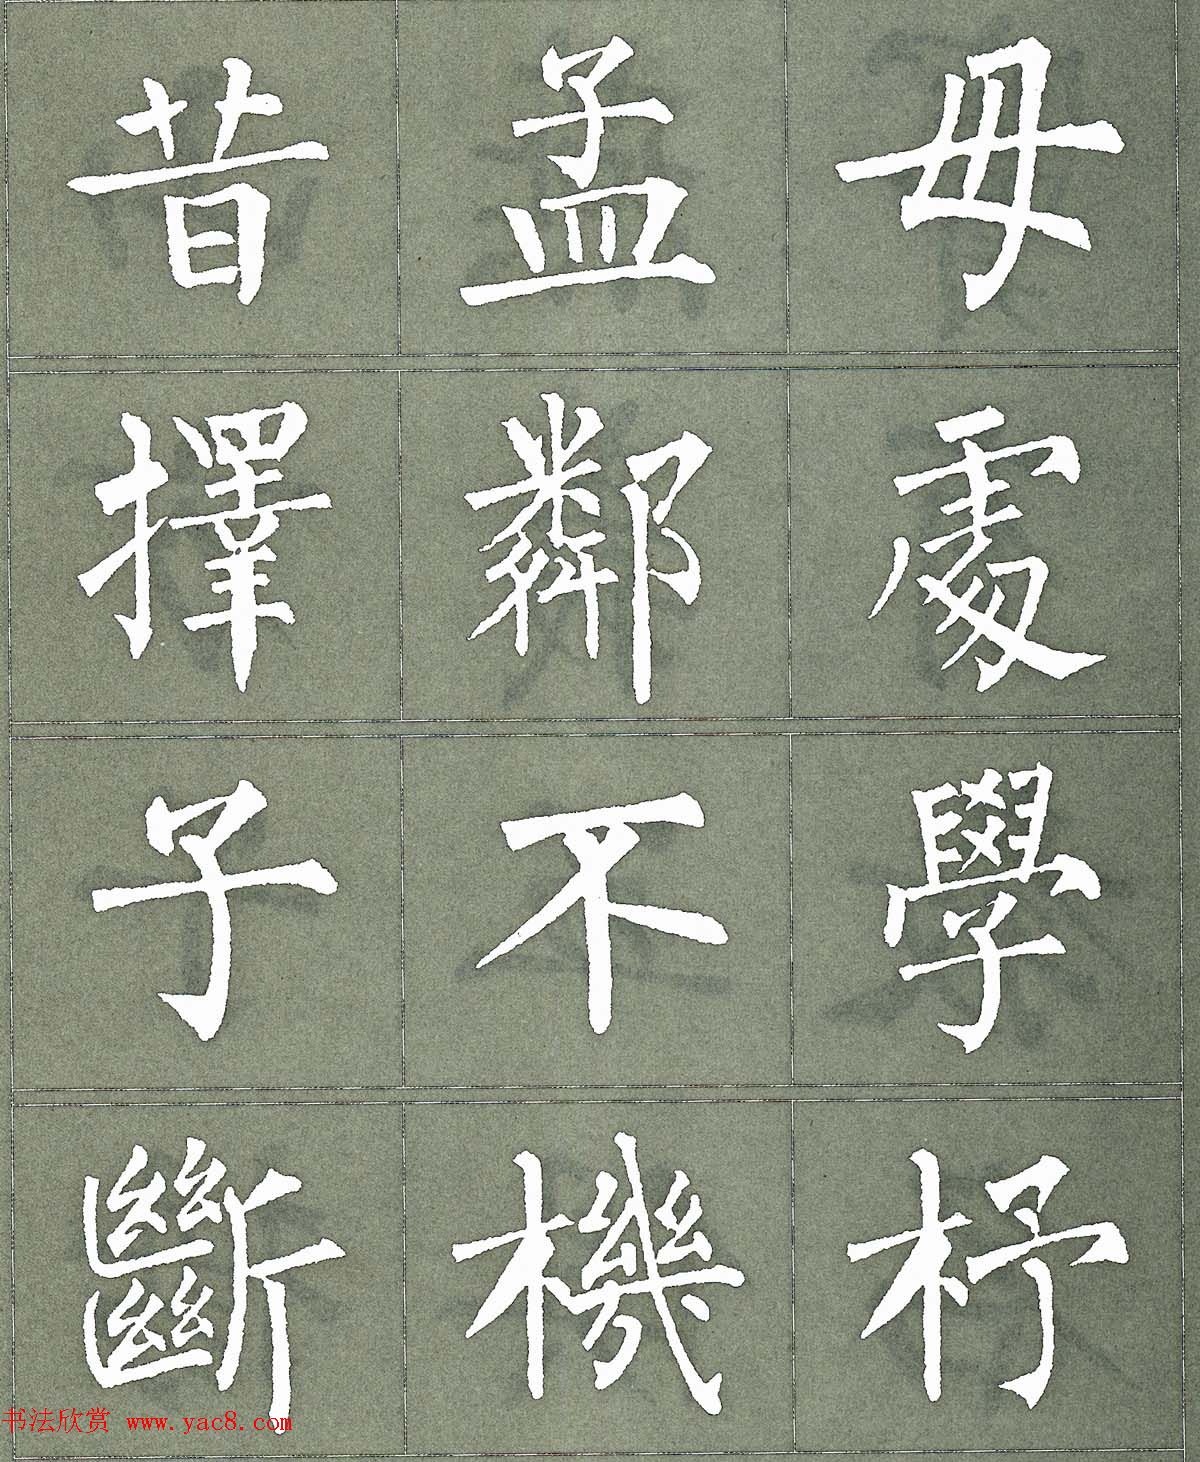 昔孟母
擇鄰處
子不學
斷機杼
书法欣赏 www.yac8.com